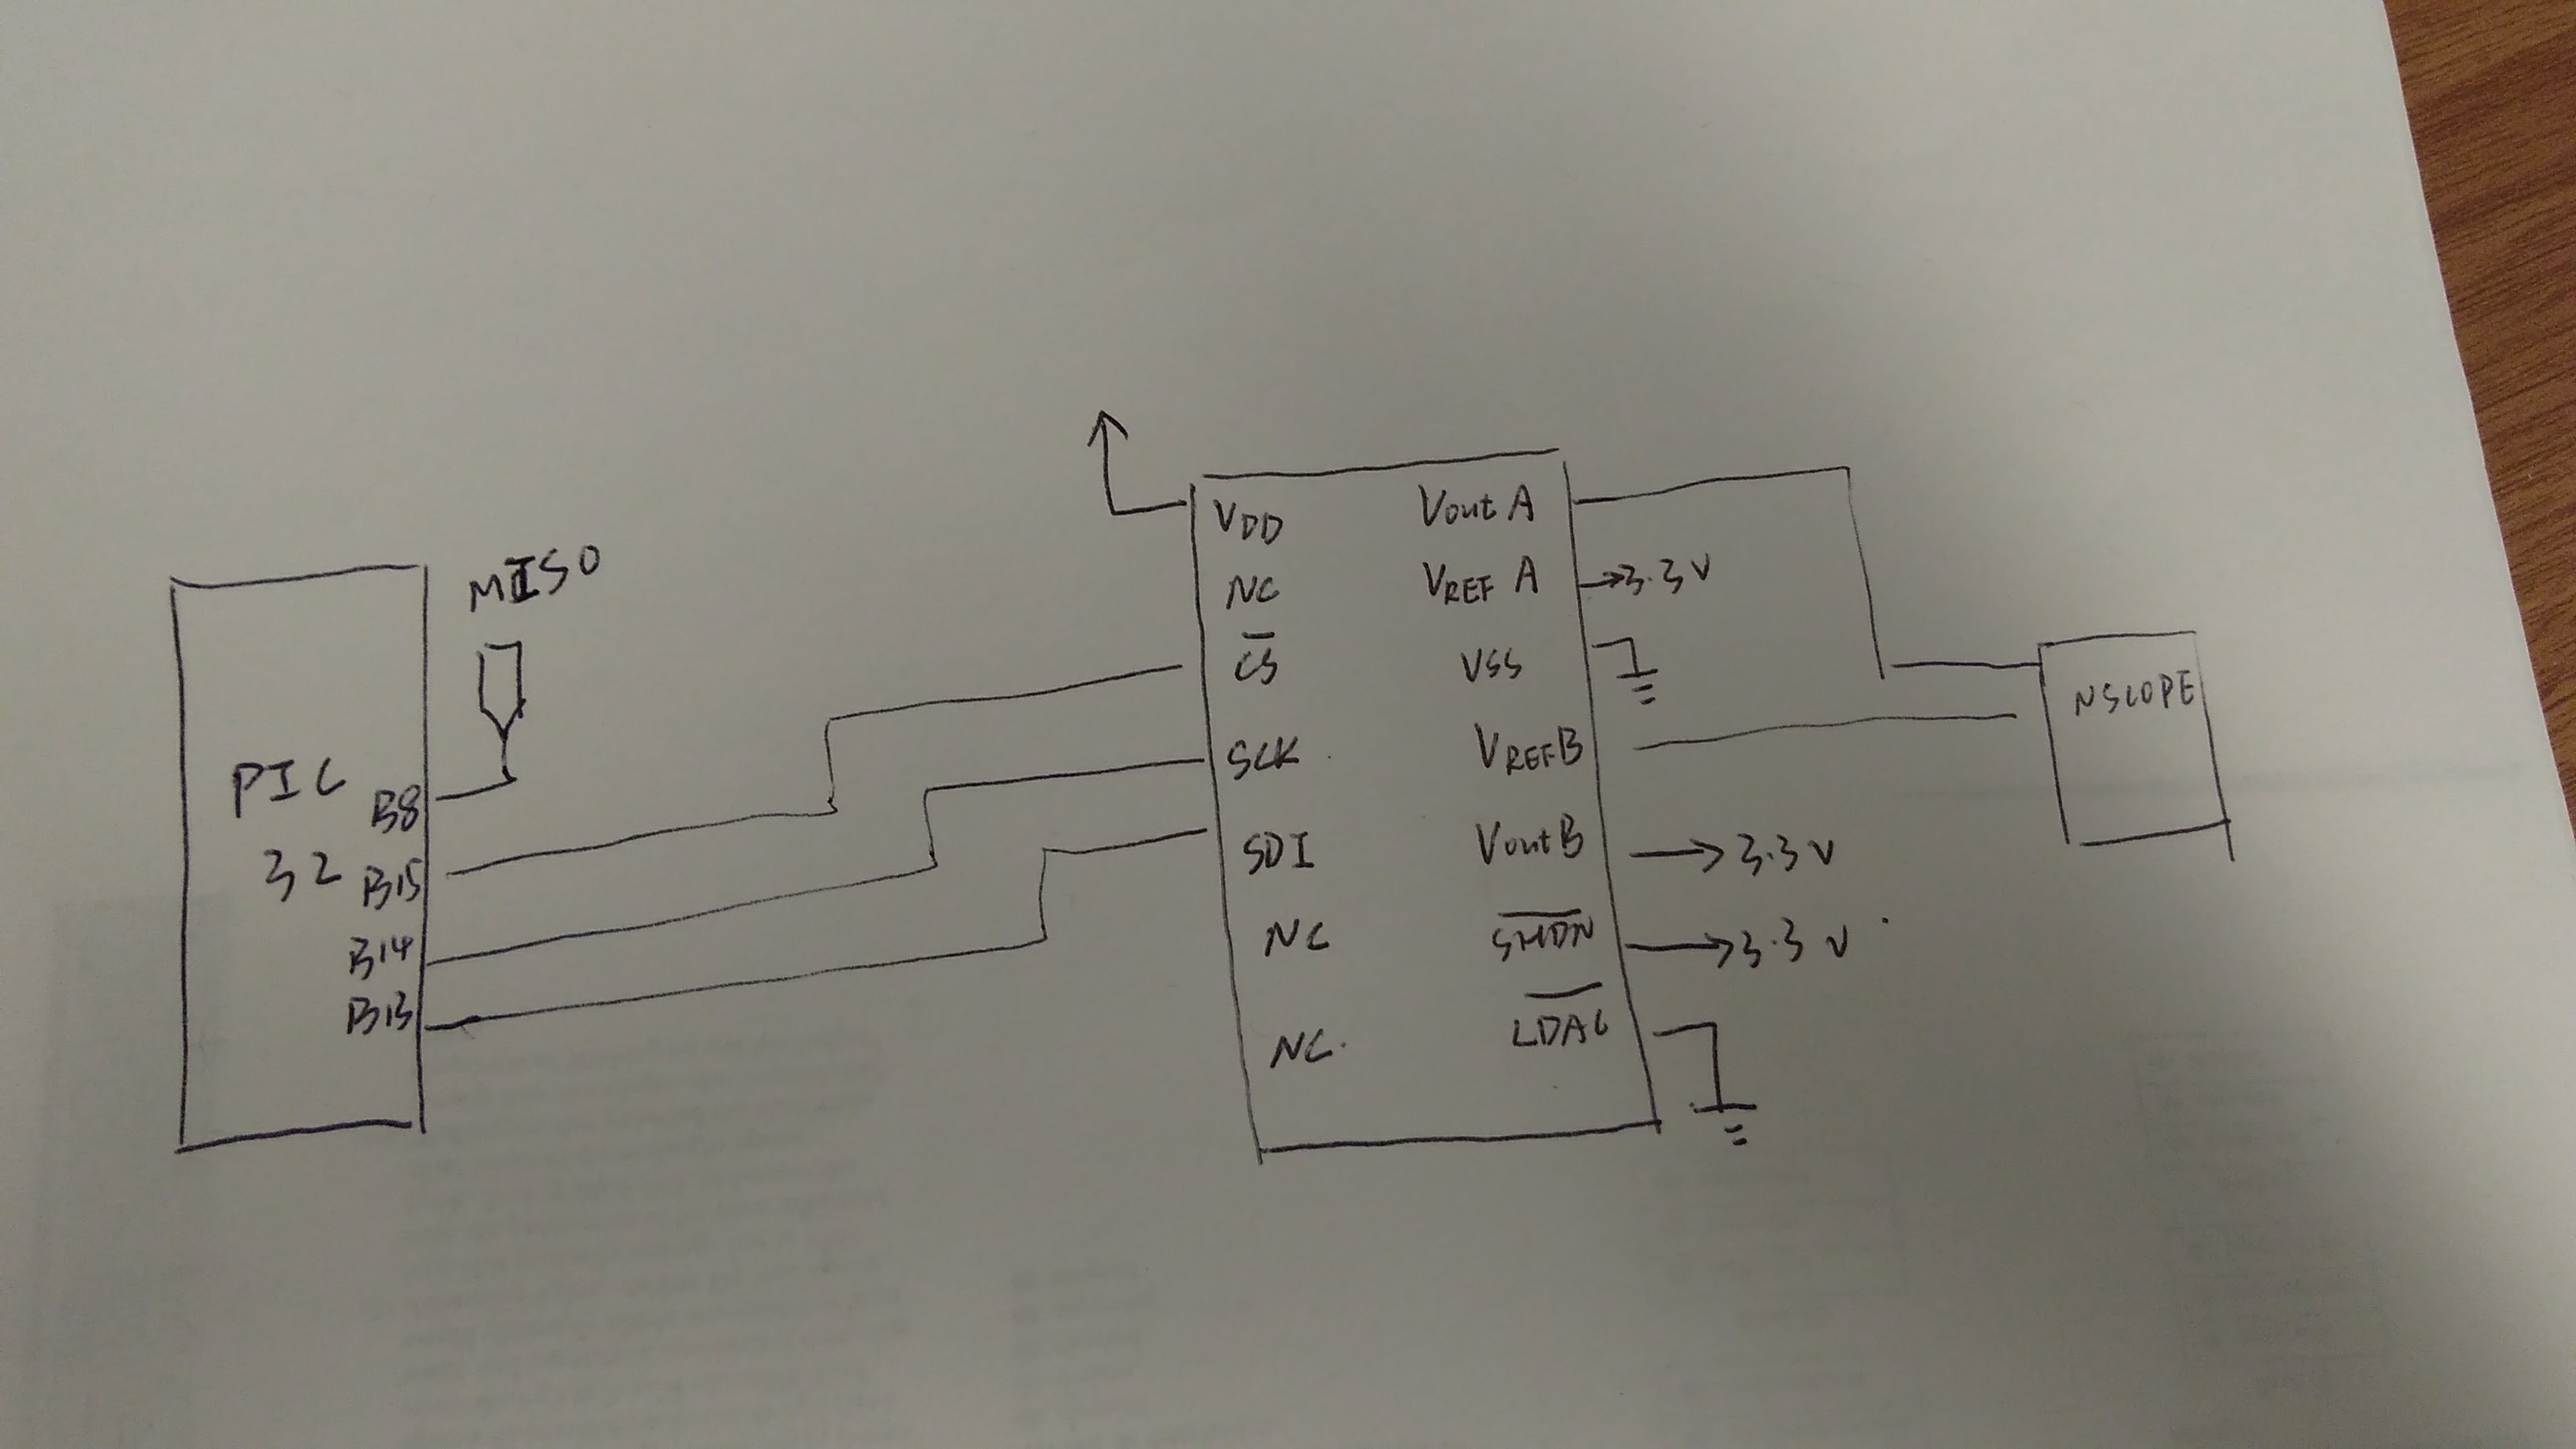 MISO
PIC
32
B8
B15
B14
B13
VDD
NC
CS
SCK
SDI
NC
NC.
Vout A
VREF A
VSS
VREFB
VoutB
SHDN
LDAC
3.3V
3.3V
3.3V
NSCOPE